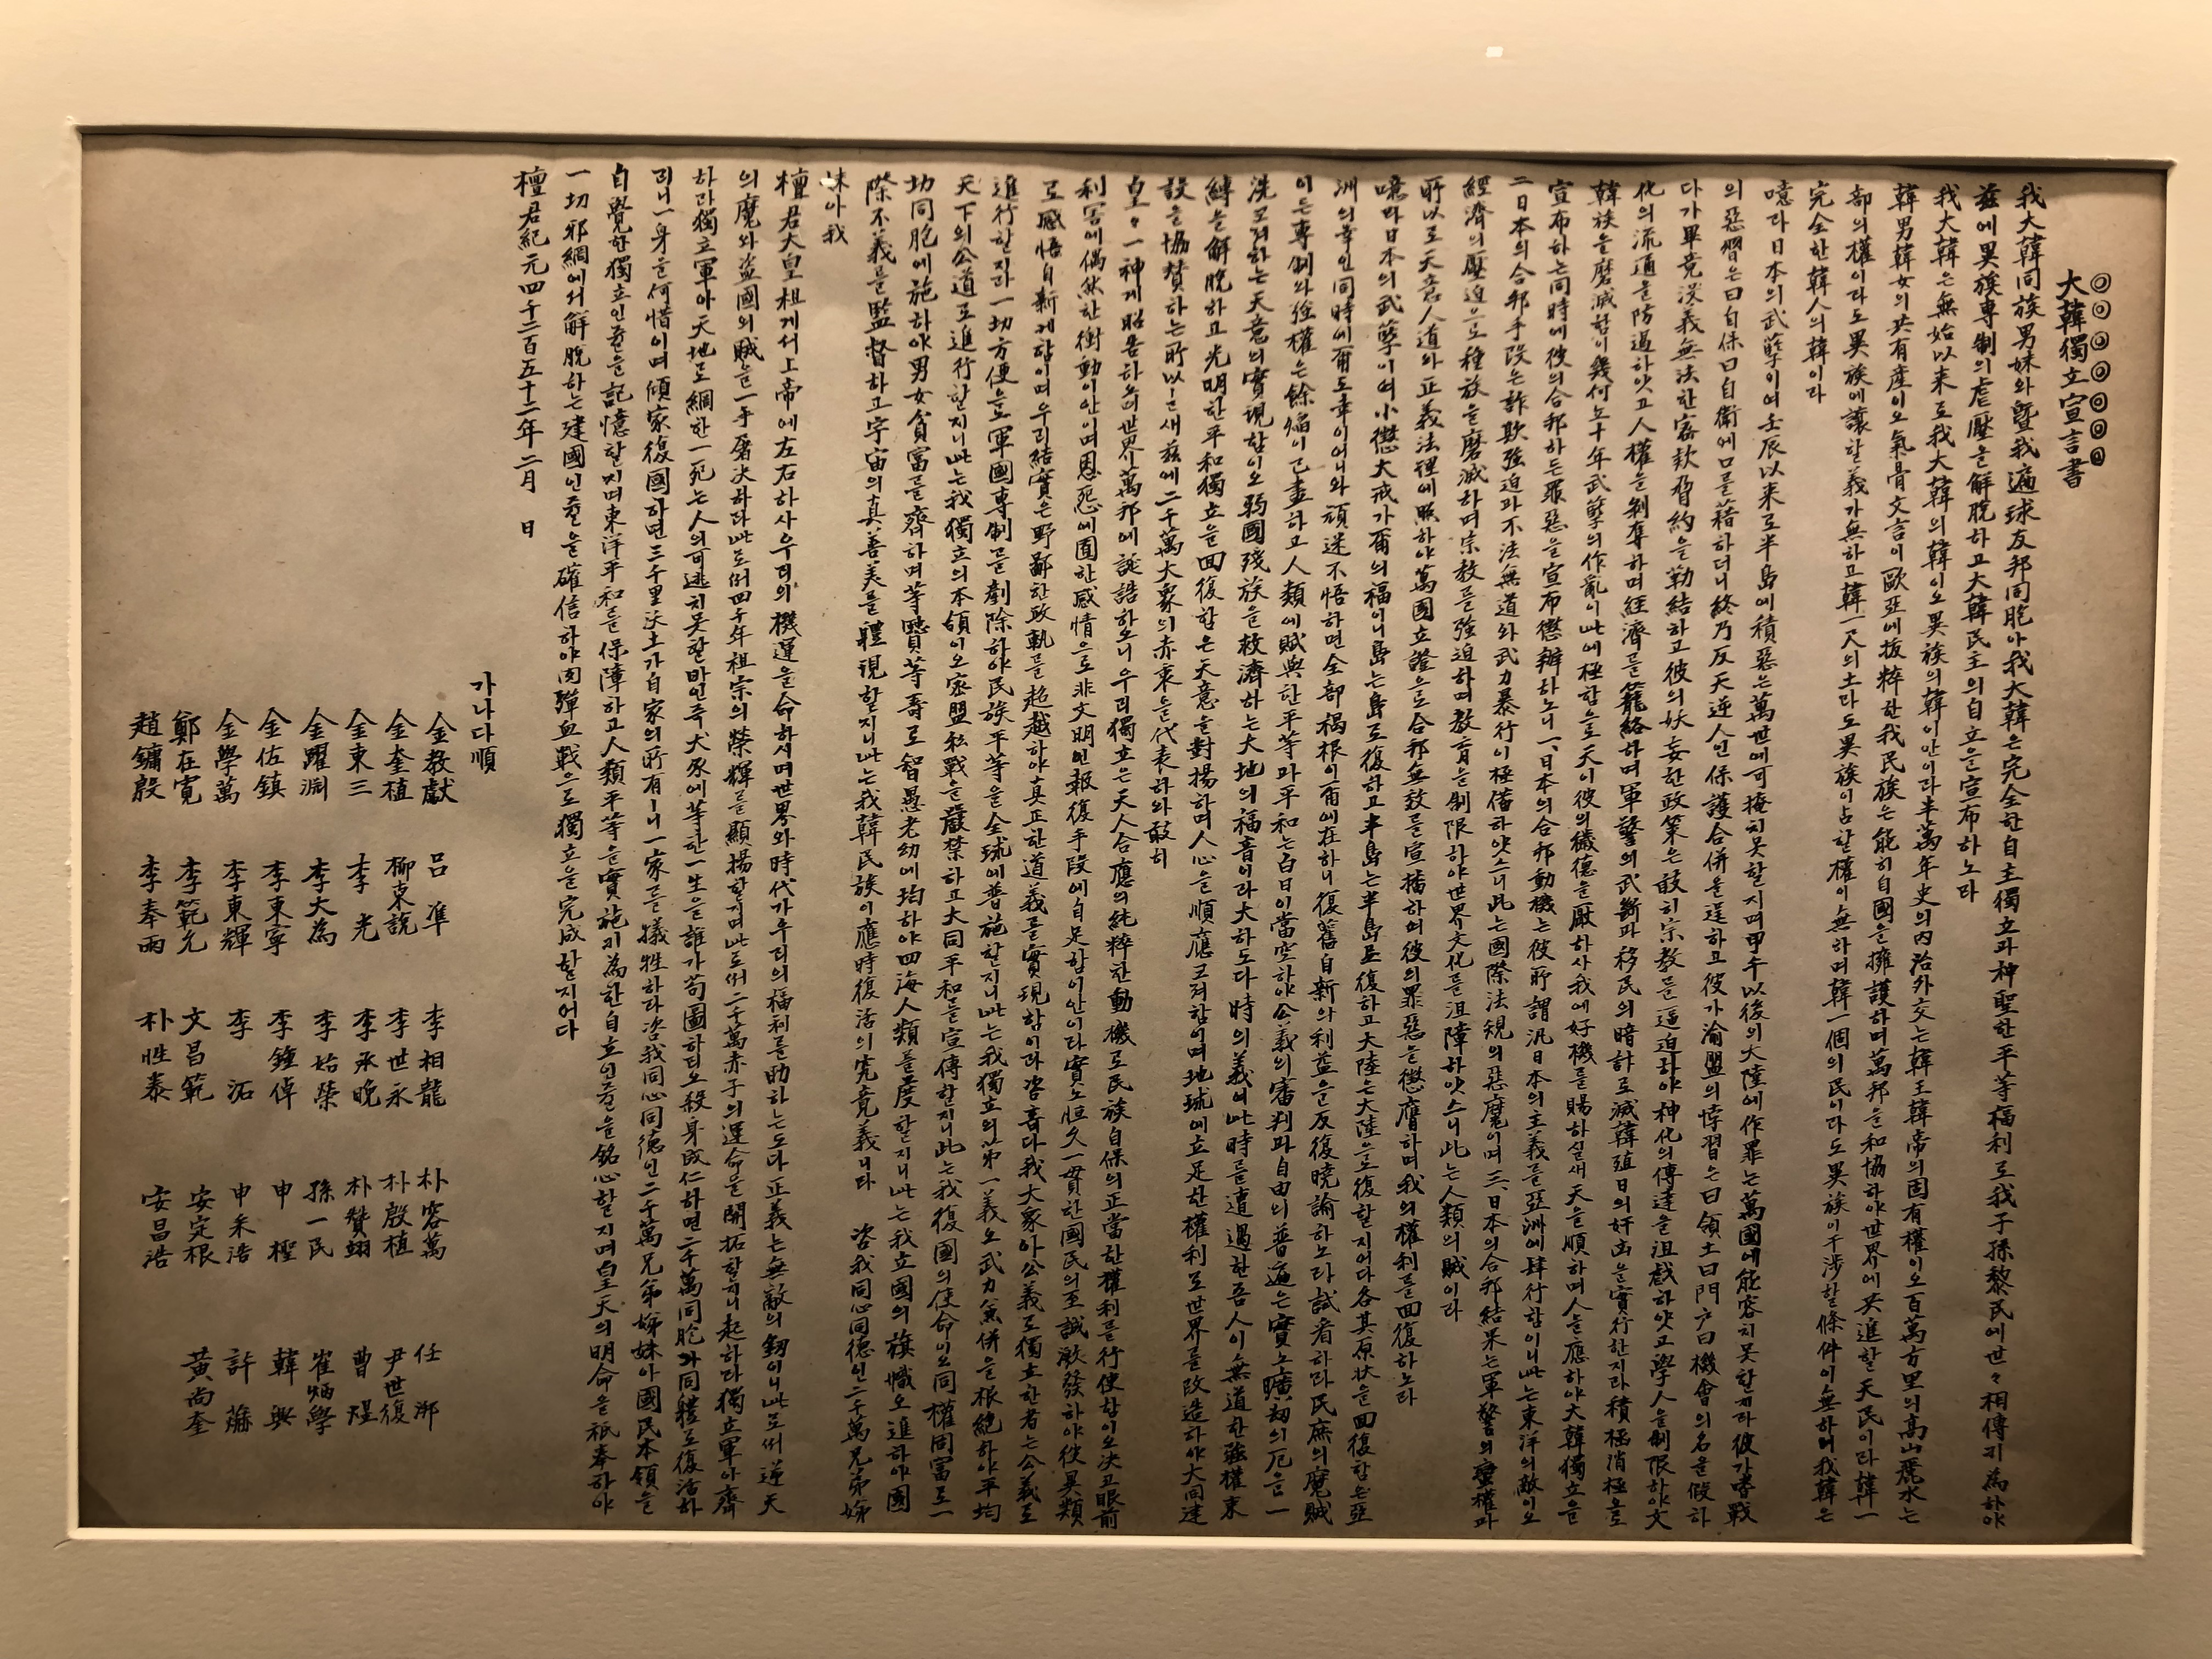 ◎◎◎◎◎◎◎
大韓獨立宣言書
我大韓同族男妹와曁我遍球友邦同胞아我大韓은完全한自主獨立과神聖한平等福利로我子孫黎民에世々相傳키為하야
玆에異族專制의虐壓을解脫하고大韓民主의自立을宣布하노라
我大韓은無始以来로我大韓의韓이오異族의韓이안이라半萬年史의内治外交는韓王韓帝의固有權이오百萬方里의高山麗水는
韓男韓女의共有産이오氣骨文言이歐亞에拔粹한我民族은能히自國을擁護하며萬邦을和協하야世界에共進할天民이라韓一
部의權이라도異族에讓할義가無하고韓一尺의土라도異族이占할權이無하며韓一個의民이라도異族이干涉할條件이無하며我韓은
完全한韓人의韓이라
噫라日本의武孼이여壬辰以来로半島에積惡은萬世에可掩치못할지며甲午以後의大陸에作罪는萬國에能容치못한제라彼가嗜戰
의惡習은曰自保曰自衛에口를藉하더니終乃反天逆人인保護合併을逞하고彼가渝盟의悖習은曰領土曰門户曰機會의名을假하
다가畢竟沒義無法한密款脅約을勒結하고彼의妖妄한政策은敢히宗教를逼迫하야神化의傳達을沮戱하얏고學人을制限하야文
化의流通을防遏하얏고人權을剝奪하며經濟를籠絡하며軍警의武斷과移民의暗計로滅韓殖日의奸凶을實行한지라積極消極으로
韓族을磨滅함이幾何뇨十年武孼의作亂이此에極함으로天이彼의穢德을厭하사我에好機를賜하실새天을順하며人을應하야大韓獨立을
宣布하는同時에彼의合邦하든罪惡을宣布懲辦하노니一、日本의合邦動機는彼所謂汎日本의主義를亞洲에肆行함이니此는東洋의敵이오
二日本의合邦手段은詐欺强迫과不法無道와武力暴行이極備하얏스니此는國際法規의惡魔이며三、日本의合邦結果는軍警의蠻權과
經濟의壓迫으로種族을磨滅하며宗教를强迫하며教育을制限하야世界文化를沮障하얏스니此는人類의賊이라
所以로天意人道와正義法理에照하야萬國立證으로合邦無效를宣播하며彼의罪惡을懲膺하며我의權利를回復하노라
噫라日本의武孼이여小懲大戒가爾의福이니島는島로復하고半島는半島로復하고大陸은大陸으로復할지어다各其原狀을回復함은亞
洲의幸인同時에爾도幸이어니와頑迷不悟하면全部禍根이爾에在하니復舊自新의利益을反復曉諭하노라試看하라民庶의魔賊
이든專制와强權은餘焰이已盡하고人類에賦與한平等과平和는白日이當空하야公義의審判과自由의普遍은實노曠刼의厄을一
洗코져하는天意의實現함이오弱國殘族을救濟하는大地의福音이라大하도다時의義여此時를遭遇한吾人이無道한强權束
縛을解脫하고光明한平和獨立을回復함은天意을對揚하며人心을順應코져함이며地球에立足한權利로世界를改造하야大同建
設을協賛하는所以ㄹ새玆에二千萬大衆의赤衷을代表하와敢히
皇々一神께昭告하오며世界萬邦에誕誥하오니우리獨立은天人合應의純粹한動機로民族自保의正當한權利를行使함이오決코眼前
利害에偶然한衝動이안이며恩怨에囿한感情으로非文明인報復手段에自足함이안이라實노恒久一貫한國民의至誠激發하야彼異類
로感悟自新케함이며우리結實은野鄙한政軌를超越하야真正한道義를實現함이라咨홉다我大衆아公義로獨立한者는公義로
進行할지라一切方便으로軍國專制를剷除하야民族平等을全球에普施할지니此는我獨立의第一義오武力兼併을根絶하야平均
天下의公道로進行할지니此는我獨立의本領이오密盟私戰을嚴禁하고大同平和를宣傳할지니此는我復國의使命이오同權同富로一
切同胞에施하야男女貧富를齊하며等賢等壽로智愚老幼에均하야四海人類를度할지니此는我立國의旗幟오進하야國
際不義를監督하고宇宙의真善美를體現할지니此는我韓民族이應時復活의究竟義니라 咨我同心同德인二千萬兄弟姉
妹아我
檀君大皇祖게서上帝에左右하사우리의機運을命하시며世界와時代가우리의福利를助하는도다正義는無敵의釼이니此로써逆天
의魔와盗國의賊을一手屠決하라此로써四千年祖宗의榮輝를顯揚할지며此로써二千萬赤子의運命을開拓할지니起하라獨立軍아齊
하라獨立軍아天地로網한一死는人의可逃치못할바인즉犬豕에等한一生을誰가苟圖하리오殺身成仁하면二千萬同胞가同體로復活하
리니一身을何惜이며傾家復國하면三千里沃土가自家의所有ㅣ니一家를犧牲하라咨我同心同德인二千萬兄弟姉妹아國民本領을
自覺한獨立인줄을記憶할지며東洋平和를保障하고人類平等을實施키為한自立인줄을銘心할지며皇天의明命을祇奉하야
一切邪網에서解脫하는建國인줄을確信하야肉彈血戰으로獨立을完成할지어다
檀君紀元四千二百五十二年二月 日
가나다順
金教獻 呂準 李相龍 朴容萬 任㘽
金奎植 柳東說 李世永 朴殷植 尹世復
金東三 李光 李承晩 朴贊翊 曹煜
金躍淵 李大為 李始榮 孫一民 崔炳學
金佐鎮 李東寧 李鍾倬 申檉 韓興
金學萬 李東輝 李沰 申采浩 許爀
鄭在寬 李範允 文昌範 安定根 黃尚奎
趙鏞殷 李奉雨 朴性泰 安昌浩